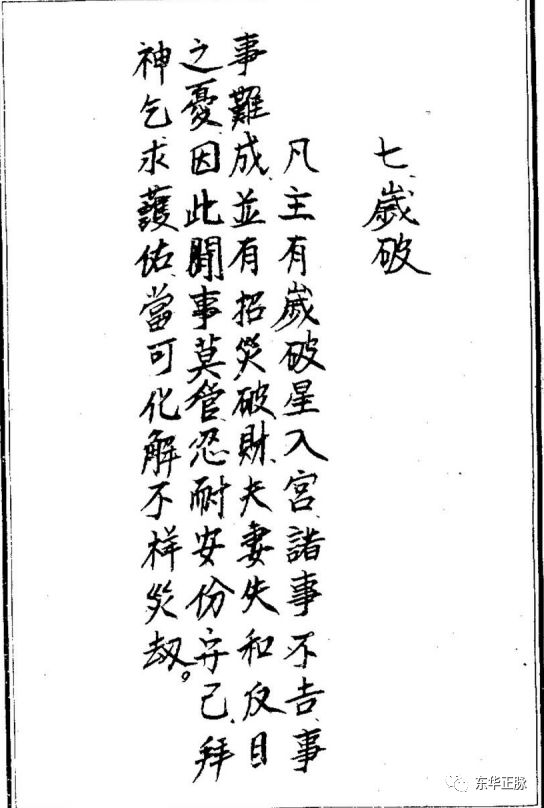 七、歲破
凡主有歲破星入宮諸事不吉、事
事難成並有招災破財、夫妻失和反目
之憂因此閒事莫管忍耐安份守己、拜
神乞求護佑當可化解不祥災劫。
东华正脉